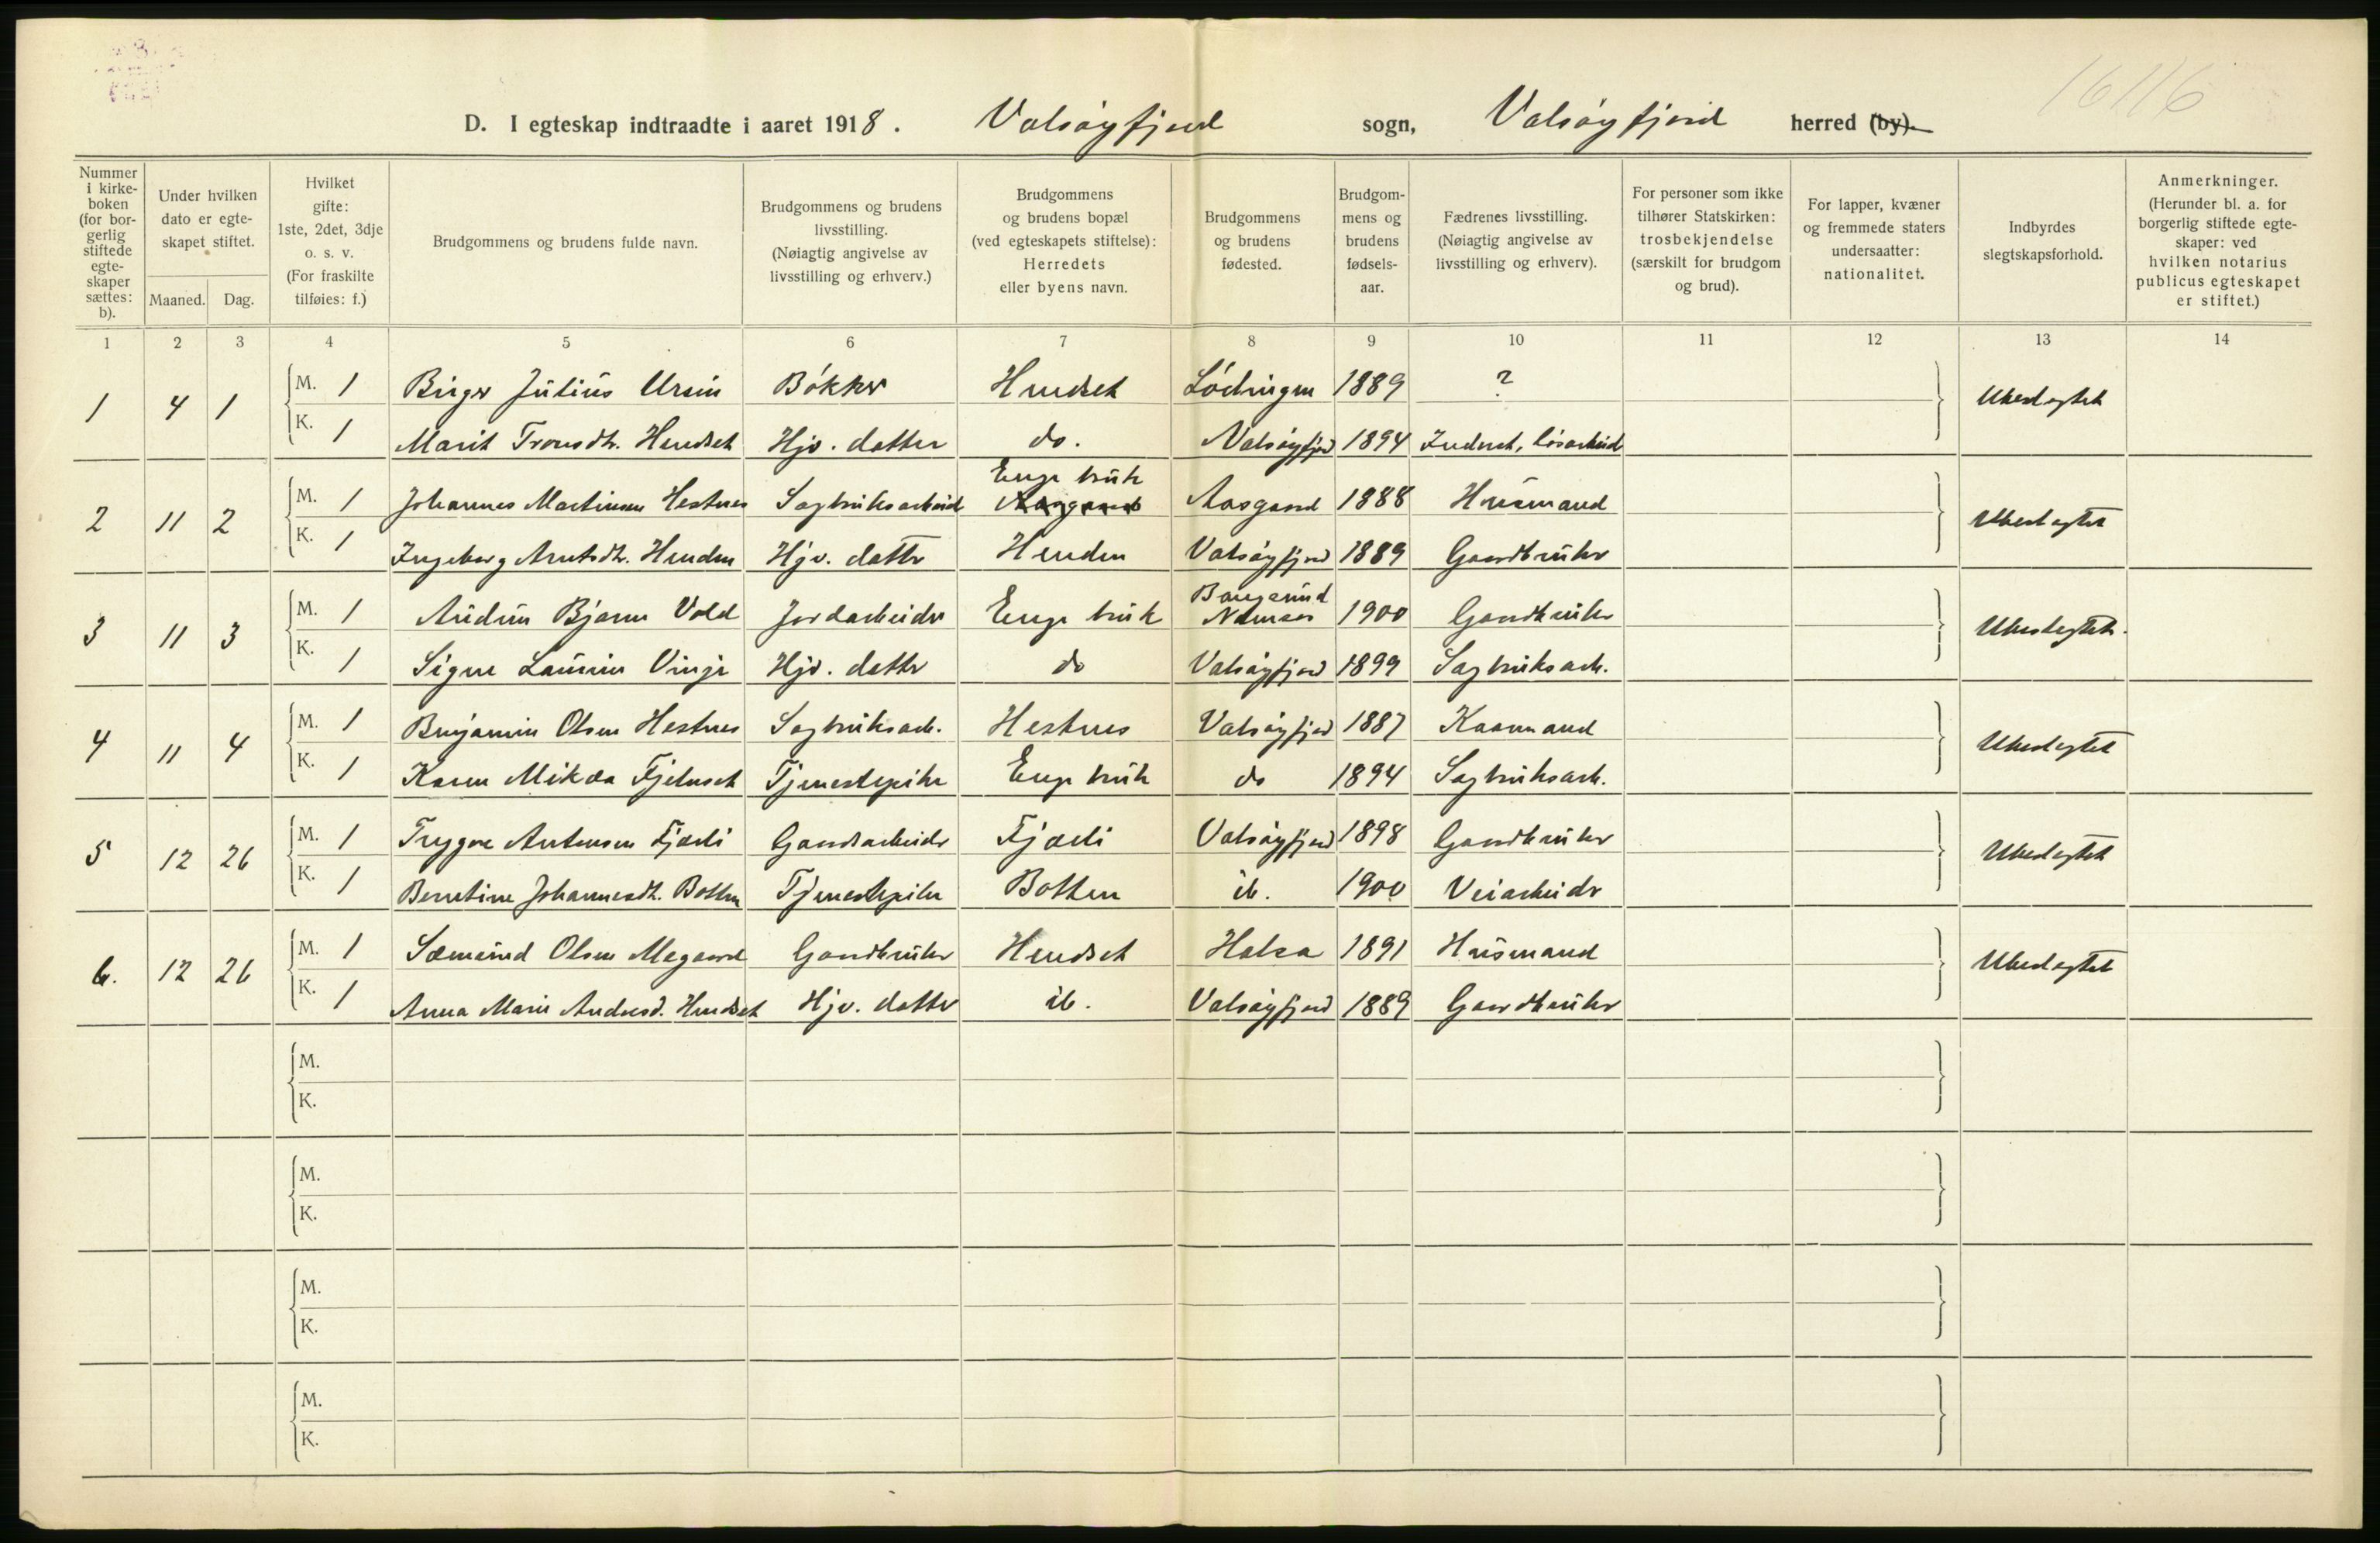 1616
D. I egteskap indtraadte i aaret 1918. Valsøyfjord sogn, Valsøyfjord herred (by).
Nummer i kirke- boken (for bor- gerlig stiftede egte- skaper sættes: b).
Under hvilken dato er egte- skapet stiftet.
Maaned. Dag.
Hvilket gifte: 1ste, 2det, 3dje o. s. v. (For fraskilte tilføies: f.)
Brudgommens og brudens fulde navn.
Brudgommens og brudens livsstilling. (Nøiagtig angivelse av livsstilling og erhverv.)
Brudgommens og brudens bopæl (ved egteskapets stiftelse): Herredets eller byens navn.
Brudgommens og brudens fødested.
Brudgom- mens og brudens fødsels- aar.
Fædrenes livsstilling. (Nøiagtig angivelse av livsstilling og erhverv).
For personer som ikke tilhører Statskirken: trosbekjendelse (særskilt for brudgom og brud).
For lapper, kvæner og fremmede staters undersaatter: nationalitet.
Indbyrdes slegtskapsforhold.
Anmerkninger. (Herunder bl. a. for borgerlig stiftede egte- skaper: ved hvilken notarius publicus egteskapet er stiftet.)
1 2 3 4 5 6 7 8 9 10 11 12 13 14
1 4 1 M. 1 Birger Julius Ursin Bøkker Hendset Lødingen 1889 ? Ubeslegtet
K. 1 Marit Tronsdtr. Hendset Hjv. datter do. Valsøyfjord 1894 Inderst, løsarbeid
2 11 2 M. 1 Johannes Martinsen Hestnes Sagbruksarbeid Enge bruk Aasgaard Aasgaard 1888 Husmand Ubeslegtet
K. 1 Ingeborg Arntsdtr. Henden Hjv. datter Henden Valsøyfjord 1889 Gaardbruker
3 11 3 M. 1 Audun Bjarne Vold Jordarbeider Enge bruk Bangsund Namsos 1900 Gaardbruker Ubeslegtet.
K. 1 Signe Launine Vinje Hjv. datter do Valsøyfjord 1899 Sagbruksarb.
4 11 4 M. 1 Benjamin Olsen Hestnes Sagbruksarb. Hestnes Valsøyfjord 1887 Kaarmand Ubeslegtet
K. 1 Karen Mikda Fjelnset Tjenestepike Enge bruk do 1894 Sagbruksarb.
5 12 26 M. 1 Trygve Antonsen Fjærli Gaardsarbeider Fjærli Valsøyfjord 1898 Gaardbruker Ubeslegtet
K. 1 Berntine Johannesdtr. Botten Tjenestepike Botten ib. 1900 Veiarbeider
6. 12 26 M. 1 Sæmund Olsen Megaard Gaardbruker Hendset Halsa 1891 Husmand Ubeslegtet
K. 1 Anna Marie Andersd. Hendset Hjv. datter ib. Valsøyfjord 1889 Gaardbruker
M.
K.
M.
K.
M.
K.
M.
K.